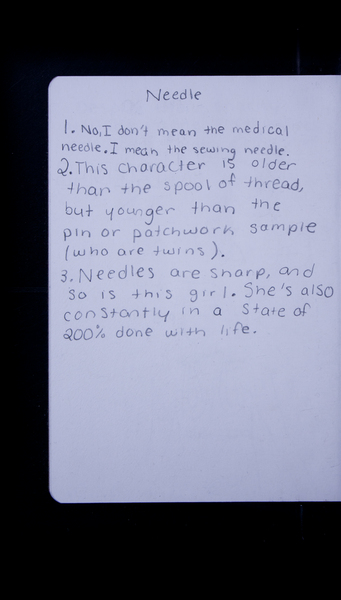 Needle
1. No, I don't mean the medical
needle. I mean the sewing needle.
2. This character is older
than the spool of thread,
but younger than the
pin or patchwork sample
(who are twins).
3. Needles are sharp, and
so is this girl. She's also
constantly in a state of
200% done with life.